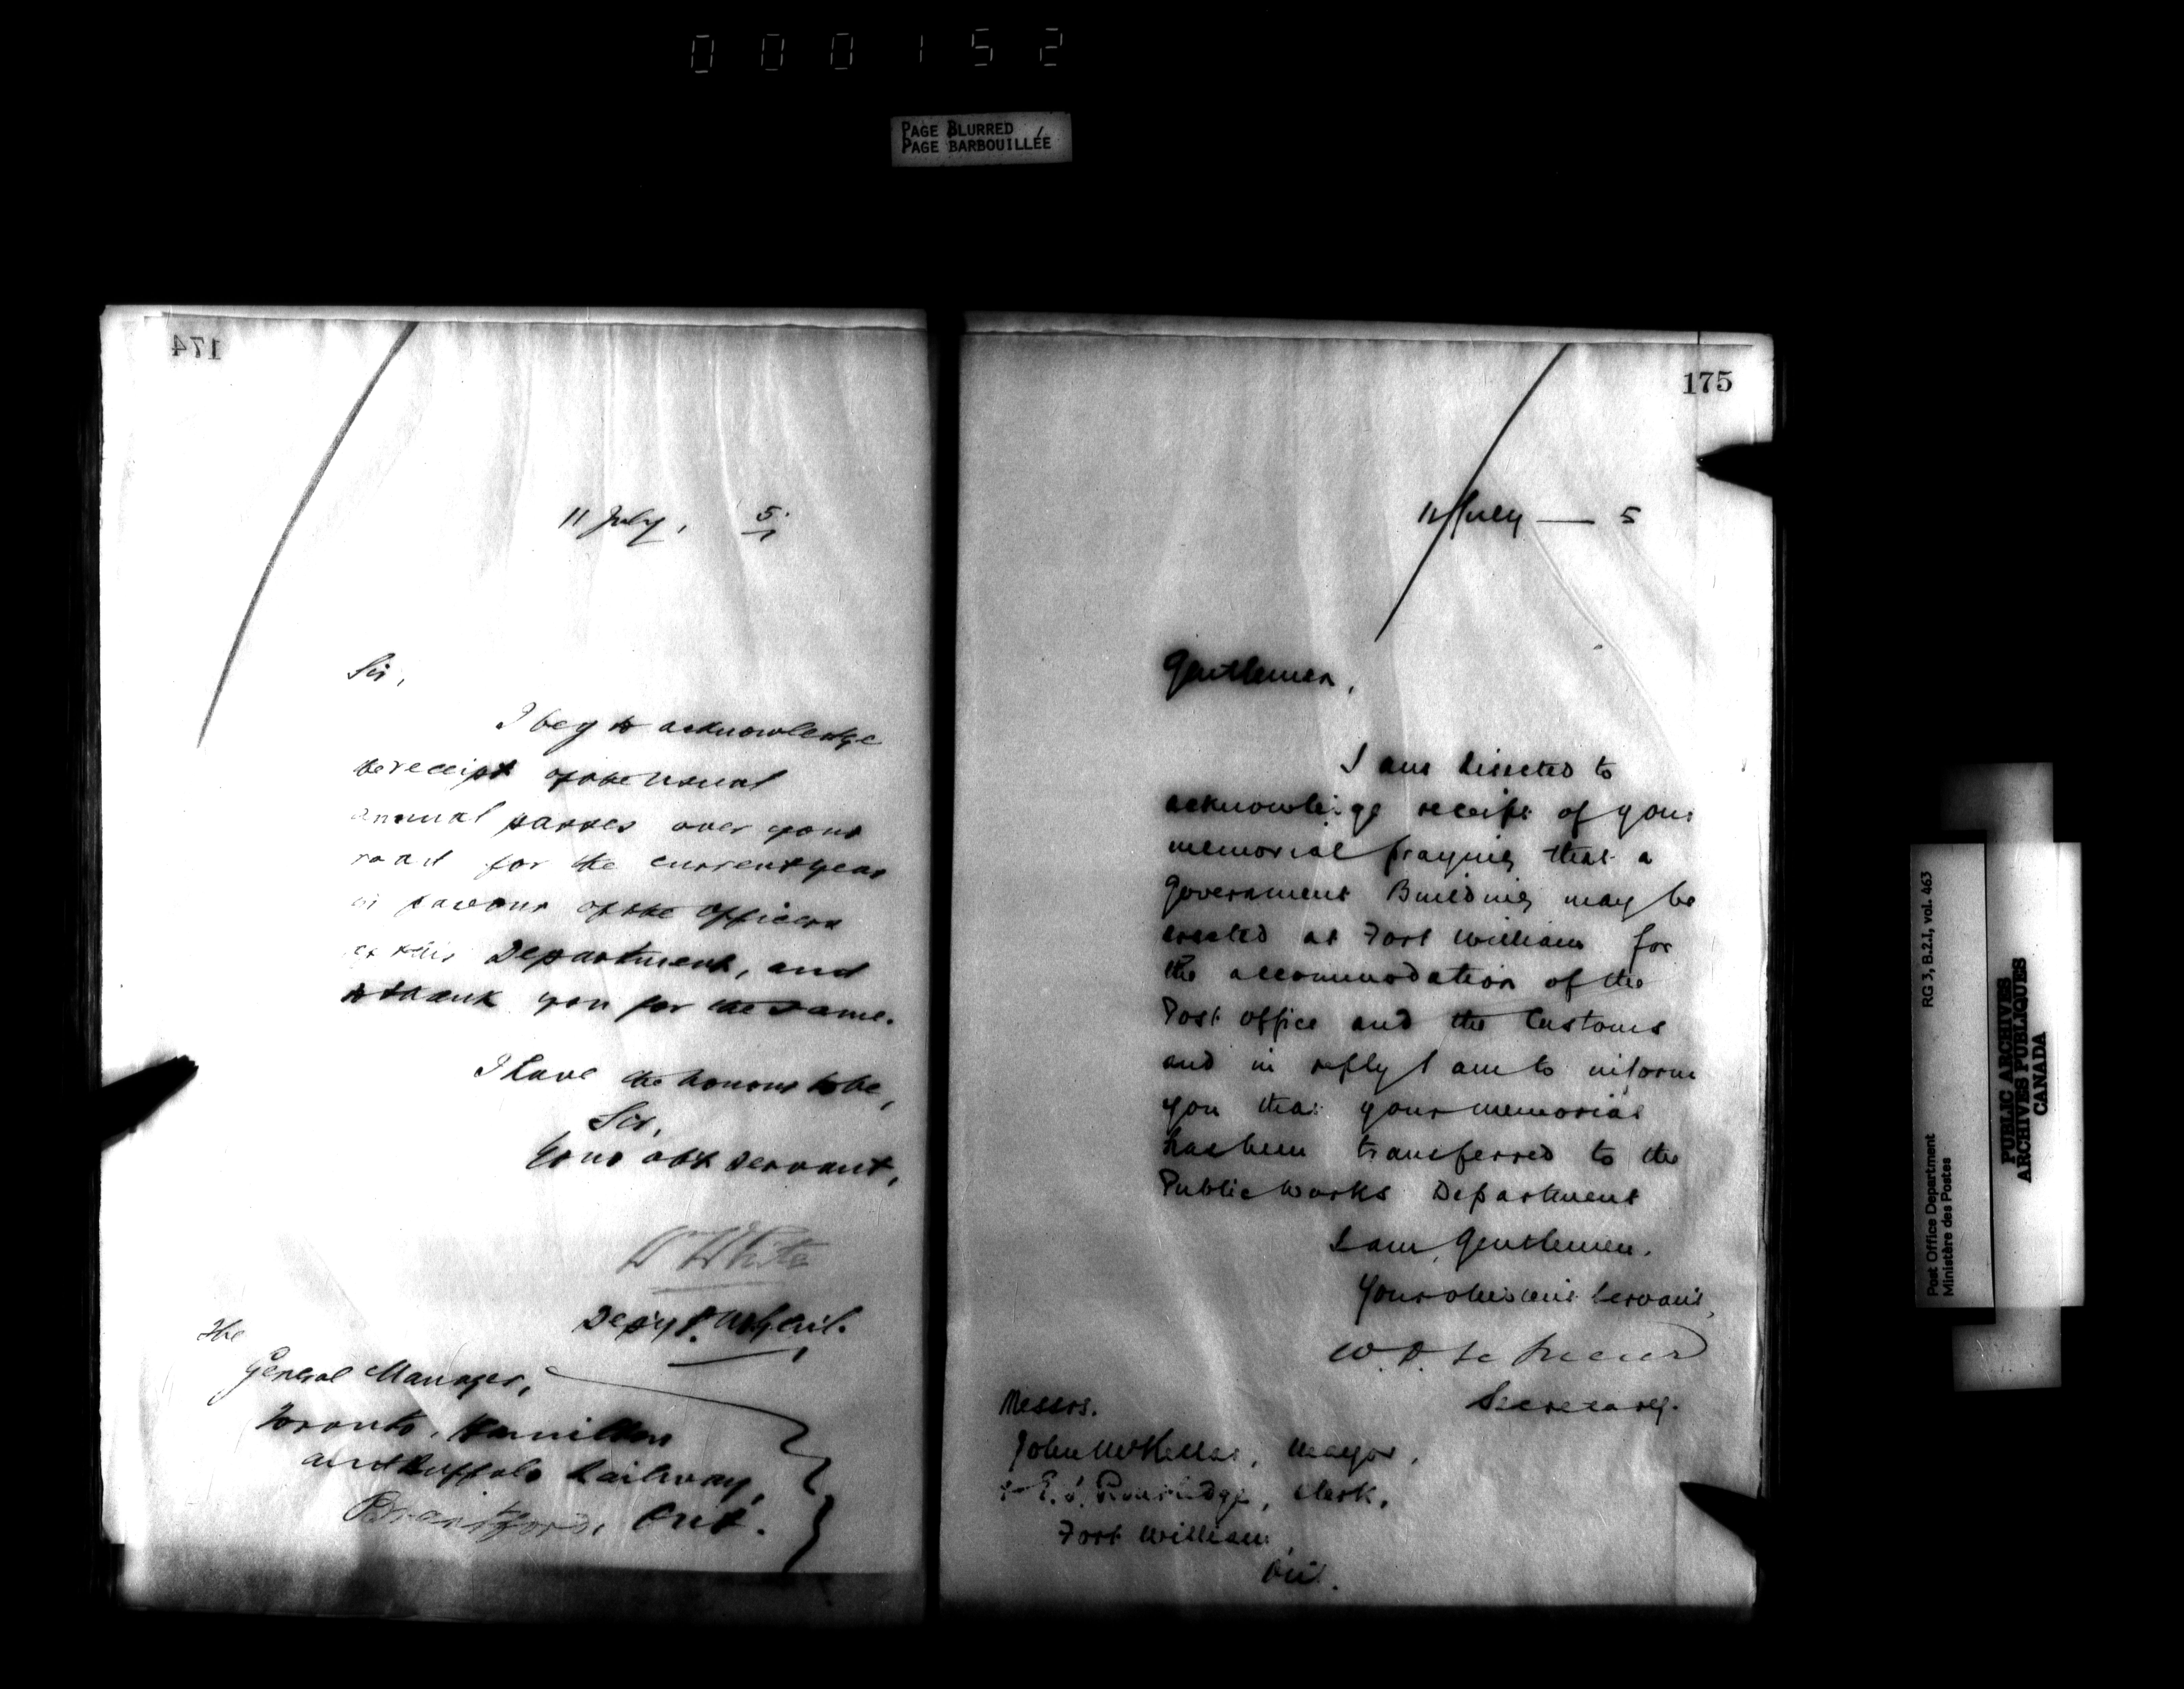 000152
PAGE BLURRED
PAGE BARBOUILLÉE
174
11 July, 5.
Sir,
I beg to acknowledge
the receipt of the usual
annual passes over your
road for the current year
in favour of the officers
of this Department, and
to thank you for the same.
I have the honour to be,
Sir,
Your obt servant,
Wm White
Depy P. M. Genl.
The
General Manager,
Toronto, Hamilton
and Buffalo Railway,
Brantford, Ont.
175
11 July — 5
Gentlemen,
I am directed to
acknowledge receipt of your
memorial praying that a
Government Building may be
erected at Fort William for
the accommodation of the
Post office and the Customs
and in reply I am to inform
you that your memorial
has been transferred to the
Public Works Department
I am, Gentlemen.
Your obedient Servant,
W. D. Le Sueur
Secretary.
Messrs.
John McKellar, Mayor,
& E. S. Rutledge, Clerk,
Fort William
Ont.
Post Office Department RG 3, B.2.1, vol. 463
Ministère des Postes
PUBLIC ARCHIVES
ARCHIVES PUBLIQUES
CANADA